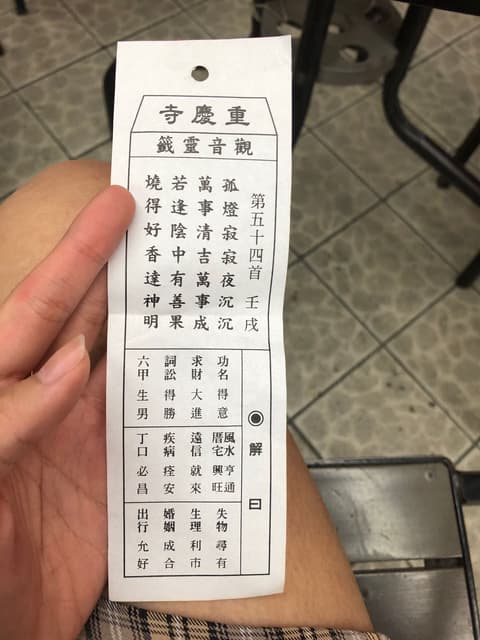 重慶寺
觀音靈籤
第五十四首 壬戌
孤燈寂寂夜沉沉
萬事清吉萬事成
若逢陰中有善果
燒得好香達神明
解曰
功名得意
求財大進
詞訟得勝
六甲生男
風水亨通
厝宅興旺
遠信就來
疾病痊安
丁口必昌
失物尋有
生理利市
婚姻成合
出行允好